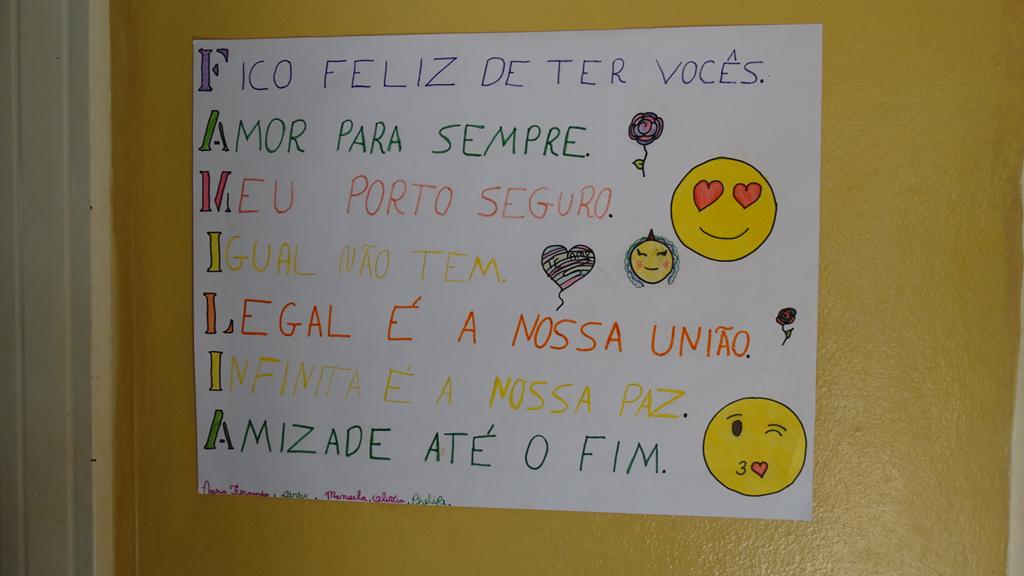 FICO FELIZ DE TER VOCÊS.
AMOR PARA SEMPRE.
MEU PORTO SEGURO.
IGUAL NÃO TEM.
LEGAL É A NOSSA UNIÃO.
INFINITA É A NOSSA PAZ.
AMIZADE ATÉ O FIM.
Maria Fernanda, Manuela,